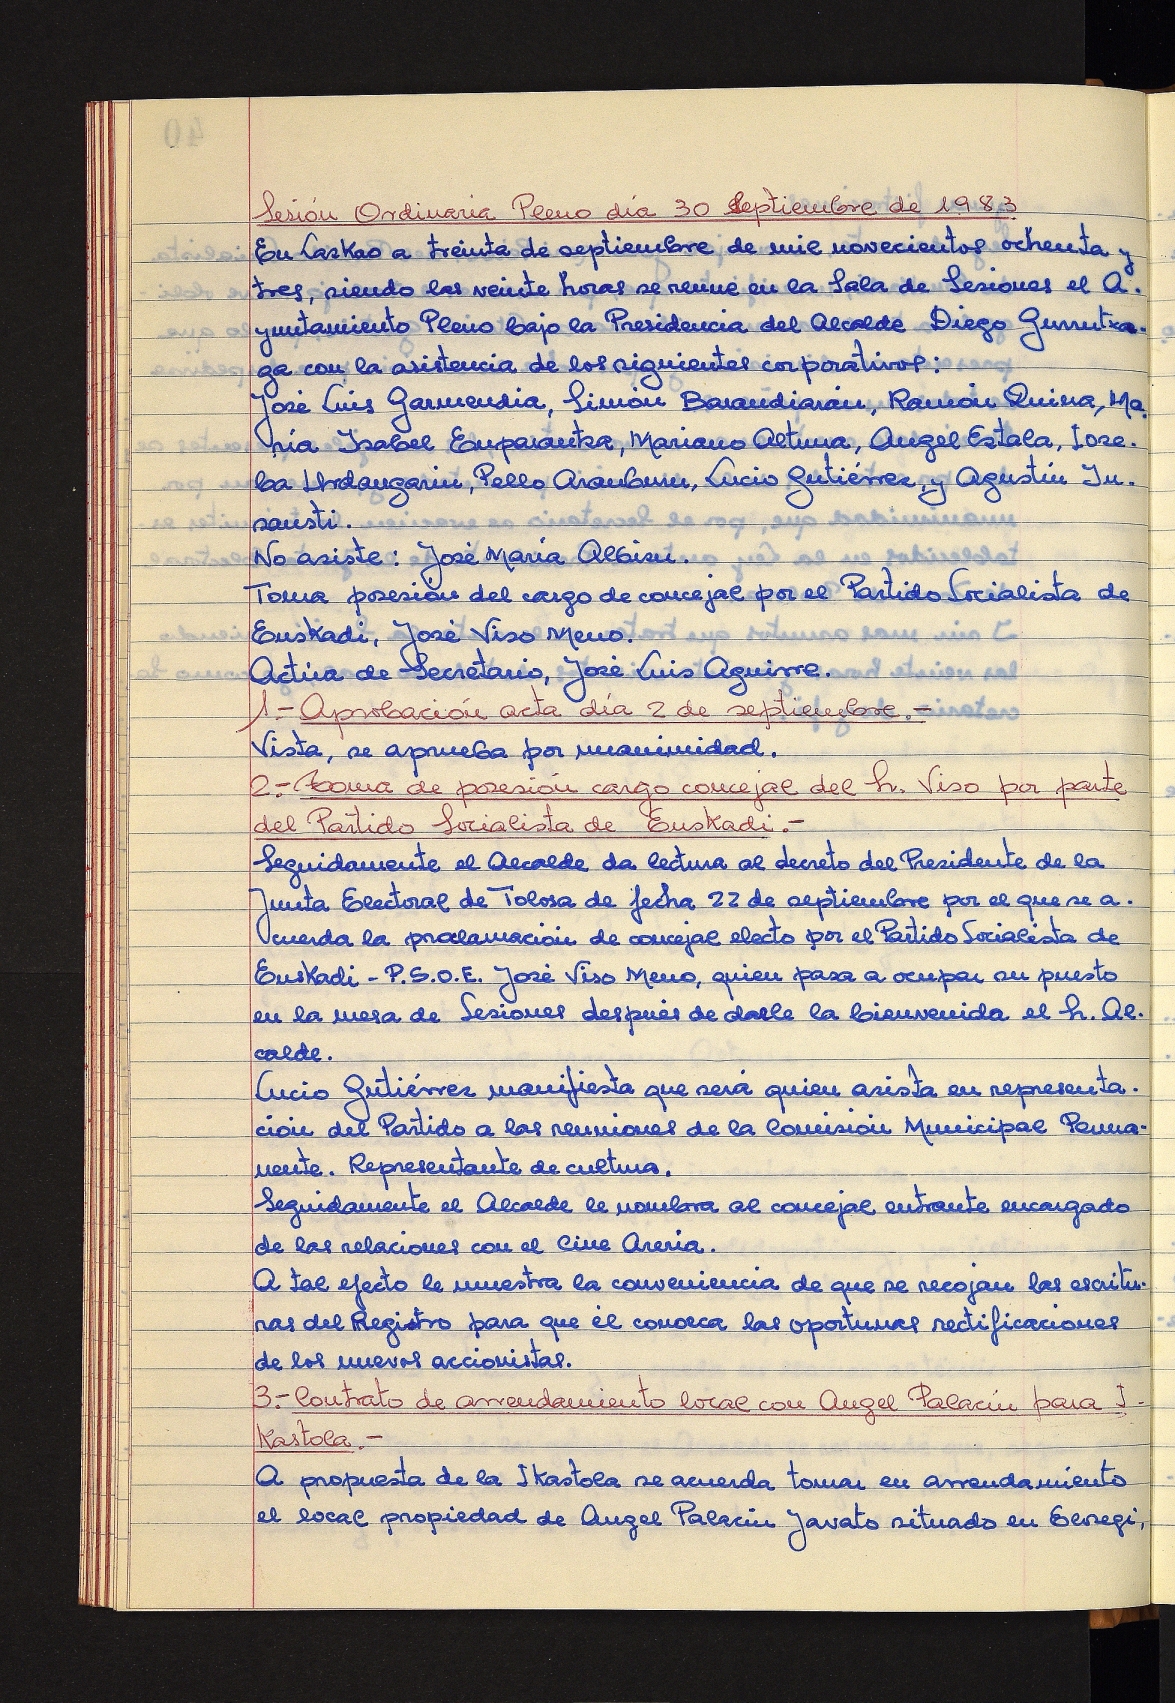 Sesión Ordinaria Pleno día 30 Septiembre de 1983
En Lazkao a treinta de septiembre de mil novecientos ochenta y
tres, siendo las veinte horas se reune en la Sala de Sesiones el A-
yuntamiento Pleno bajo la Presidencia del Alcalde Diego Gurrutxa-
ga con la asistencia de los siguientes corporativos:
José Luis Garmendia, Simón Barandiarán, Ramón Quina, Ma-
ría Isabel Enparantza, Mariano Altuna, Angel Estala, Iose-
ba Urdangarin, Pello Aranburu, Lucio Gutiérrez, y Agustín In-
sausti.
No asiste: José María Albisu.
Toma posesión del cargo de concejal por el Partido Socialista de
Euskadi, José Viso Meno.
Actúa de Secretario, José Luis Aguirre.
1.- Aprobación acta día 2 de septiembre.-
Vista, se aprueba por unanimidad.
2.- Toma de posesión cargo concejal del Sr. Viso por parte
del Partido Socialista de Euskadi.-
Seguidamente el Alcalde da lectura al decreto del Presidente de la
Junta Electoral de Tolosa de fecha 22 de septiembre por el que se a-
cuerda la proclamación de concejal electo por el Partido Socialista de
Euskadi - P.S.O.E. José Viso Meno, quien pasa a ocupar su puesto
en la mesa de Sesiones después de darle la bienvenida el Sr. Al-
calde.
Lucio Gutiérrez manifiesta que será quien asista en representa-
ción del Partido a las reuniones de la Comisión Municipal Perma-
nente. Representante de cultura.
Seguidamente el Alcalde le nombra al concejal entrante encargado
de las relaciones con el Cine Areria.
A tal efecto le muestra la conveniencia de que se recojan las escritu-
ras del Registro para que él conozca las oportunas rectificaciones
de los nuevos accionistas.
3.- Contrato de arrendamiento local con Angel Palacín para I-
Kastola.-
A propuesta de la Ikastola se acuerda tomar en arrendamiento
el local propiedad de Angel Palacín Javato situado en Elosegi,